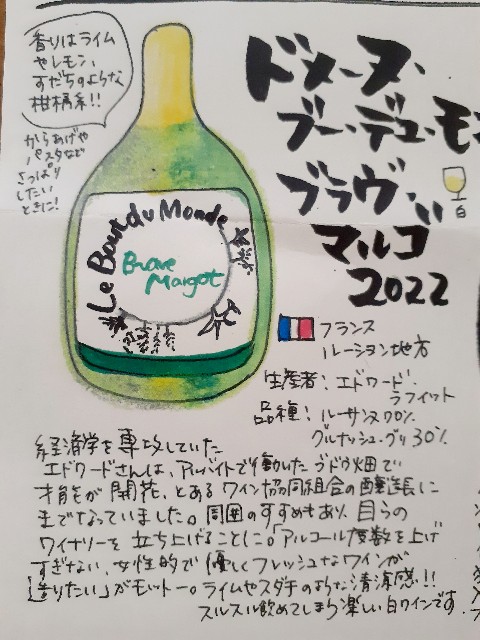 香りはライム
やレモン、
すだちのような
柑橘系!!
からあげや
パスタなど
さっぱり
したい
ときに!
ドメーヌ・
ブー・デュ・モン
ブラヴ・
マルゴ
2022
白
Le Bout du Monde
Brave
Margot
フランス
ルーション地方
生産者：エドワード・
ラフィット
品種：ルーサンヌ70%
グルナッシュ・グリ30%
経済学を専攻していた
エドワードさんは、アルバイトで働いたブドウ畑で
才能が開花、とあるワイン協同組合の醸造長に
までなっていました。周囲のすすめもあり、自らの
ワイナリーを立ち上げることに。「アルコール度数を上げ
すぎない、女性的で優しくフレッシュなワインが
造りたい」がモットー。ライムやスダチのような清涼感!!
スルスル飲めてしまう楽しい白ワインです。